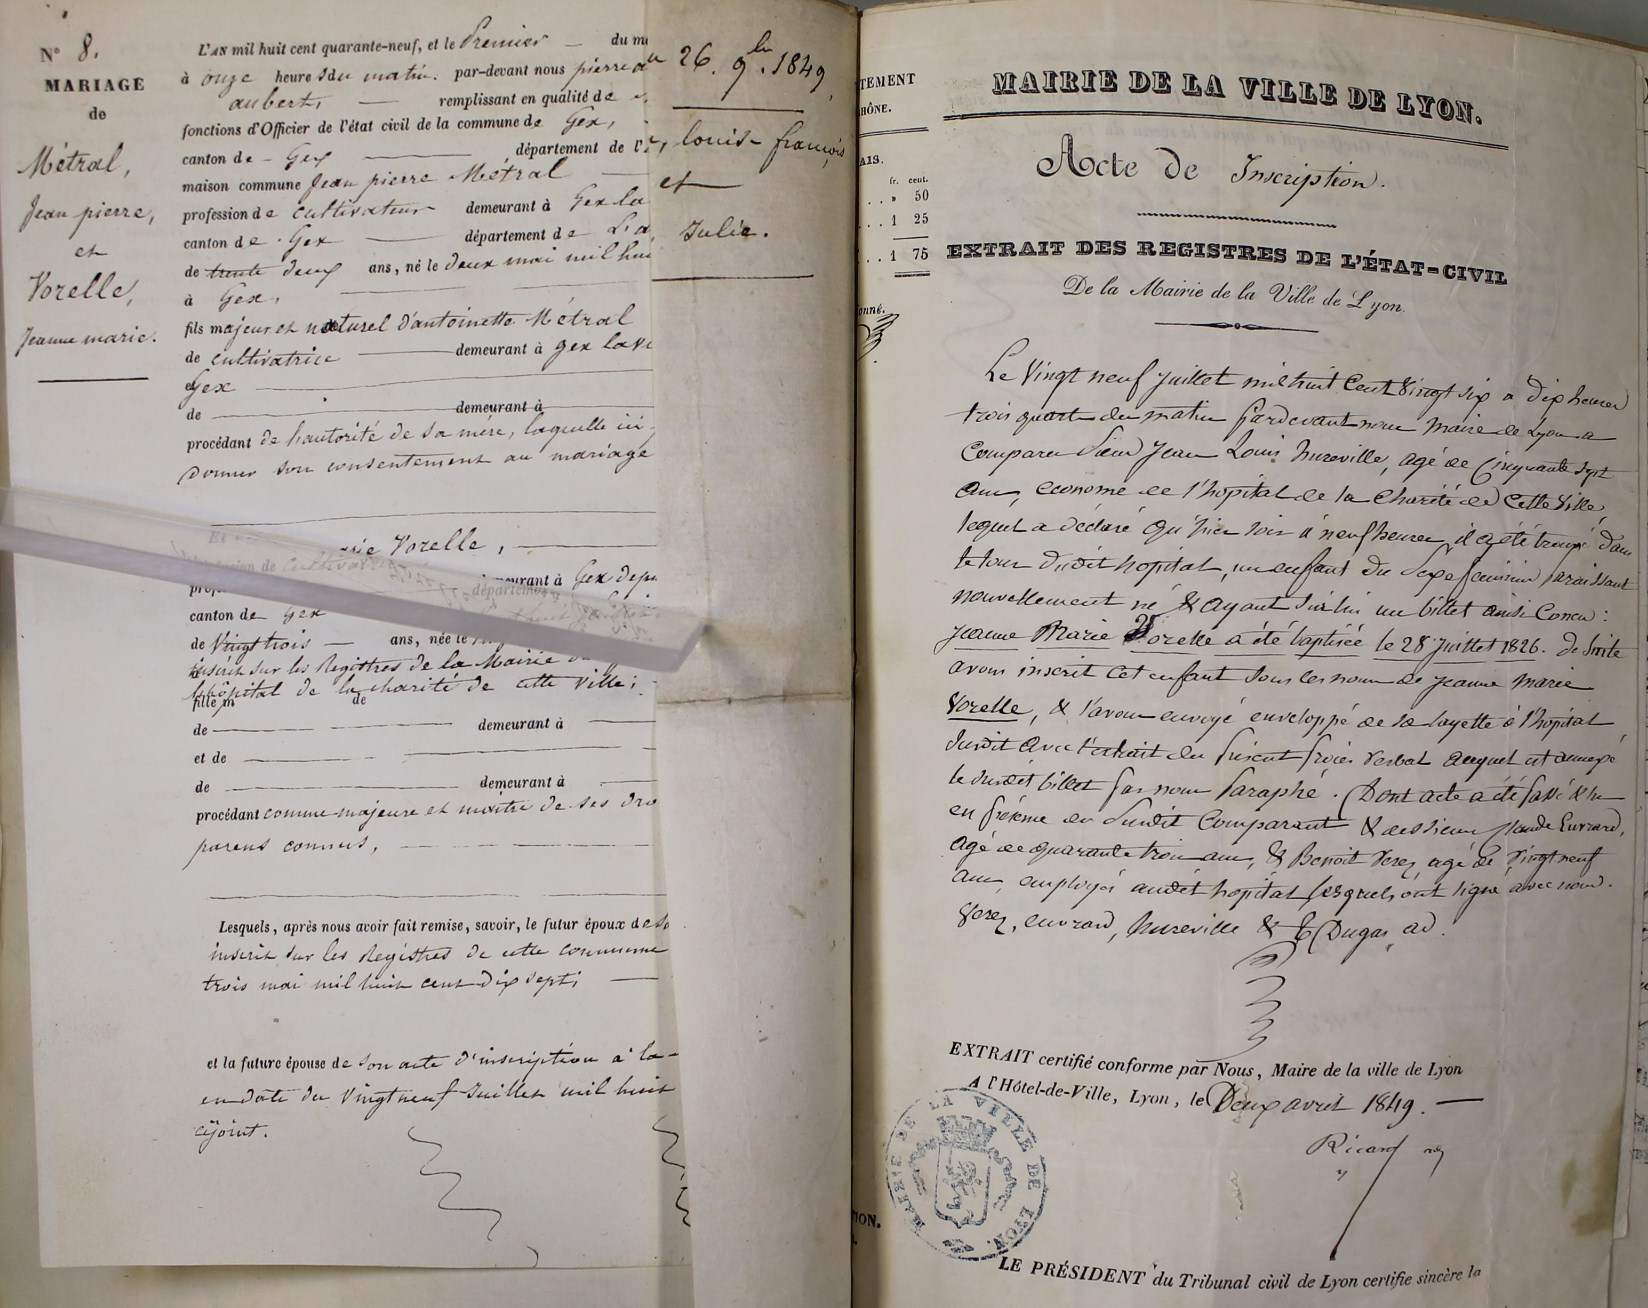 N° 8.
MARIAGE
de
Métral,
Jean pierre,
et
Vorelle,
Jeanne marie.
L'AN mil huit cent quarante-neuf, et le Premier — du
à onze heures du matin. par-devant nous pierre
aubert, — remplissant en qualité de
fonctions d'Officier de l'état civil de la commune de Gex,
canton de - Gex — département de l'
maison commune Jean pierre Métral
profession de cultivateur demeurant à Gex la
canton de Gex — département de L'a
de trente deux ans, né le deux mai mil hui
à Gex, —
fils majeur et naturel d'antoinette Métral
de cultivatrice — demeurant à gex la
Gex —
de — demeurant à
procédant de l'autorité de sa mère, laquelle ici
donner son consentement au mariage
rie Vorelle, —
demeurant à Gex depu
canton de Gex
de Vingt trois — ans, née le
inscrit sur les Registres de la Mairie
l'hôpital de la charité de cette ville;
fille de
de — demeurant à
et de —
de — demeurant à
procédant comme majeure et maître de ses dro
parens connus, —
Lesquels, après nous avoir fait remise, savoir, le futur époux de
inscrit sur les Registres de cette commune
trois mai mil huit cent dix sept; —
et la future épouse de son acte d'inscription à la
en date du Vingt neuf Juillet mil huit
cijoint.
26. 9bre 1849,
louis françois
et
Julie.
TEMENT
HÔNE.
AIS.
fr. cent.
. . » 50
. . . 1 25
. . 1 75
onné.
ION.
MAIRIE DE LA VILLE DE LYON.
Acte de Inscription.
EXTRAIT DES REGISTRES DE L'ÉTAT-CIVIL
De la Mairie de la Ville de Lyon.
Le Vingt neuf Juillet mil huit Cent Vingt six a dix heures
trois quart du matin pardevant nous Maire de Lyon a
Comparu Sieur Jean Louis hureville, agé de Cinquante sept
ans, econome de l'hopital de la Charité de Cette Ville,
lequel a déclaré qu'hier soir a neuf heures il a été trouvé dans
le tour dudit hopital, un enfant du Sexe feminin paraissant
nouvellement né & ayant sur lui un billet ainsi Concu :
Jeanne Marie Vorelle a été baptisée le 28 Juillet 1826. de Suite
avons inscrit Cet enfant sous les noms de Jeanne Marie
Vorelle, & l'avons envoyé enveloppé de sa layette à l'hopital
Susdit avec l'extrait du présent procès verbal auquel est annexé
le susdit billet par nous paraphé. Dont acte a été passé & lu
en présence du Susdit Comparant & des sieurs Claude Euvrard,
agé de quarante trois ans, & Benoît Verez agé de Vingt neuf
ans, employés audit hopital lesquels ont signé avec nous.
Verez, euvrard, hureville & E Dugas ad.
EXTRAIT certifié conforme par Nous, Maire de la ville de Lyon
A l'Hôtel-de-Ville, Lyon, le Deux avril 1849. —
Ricard
MAIRIE DE LA VILLE DE LYON
LE PRÉSIDENT du Tribunal civil de Lyon certifie sincère la